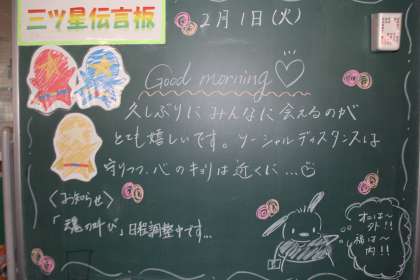 三ツ星伝言板
2月1日(火)
Good morning♡
久しぶりにみんなに会えるのが
とても嬉しいです。ソーシャルディスタンスは
守りつつ、心のキョリは近くに…
<お知らせ>
「魂の叫び」日程調整中です…
オニは〜
外!!
福は〜
内!!